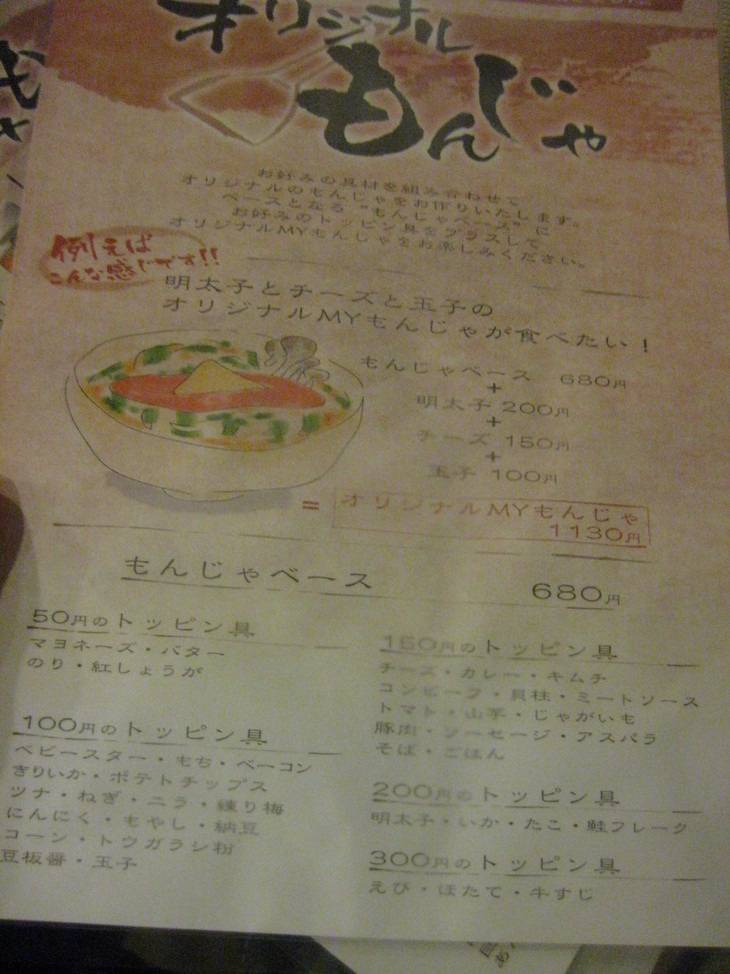 オリジナル
もんじゃ
お好みの具材を組み合わせて
オリジナルのもんじゃをお作りいたします。
ベースとなる“もんじゃベース”に
お好みのトッピン具をプラスして
オリジナルMYもんじゃをお楽しみください。
例えば
こんな感じです!!
明太子とチーズと玉子の
オリジナルMYもんじゃが食べたい！
もんじゃベース 680円
+
明太子 200円
+
チーズ 150円
+
玉子 100円
= オリジナルMYもんじゃ
1130円
もんじゃベース 680円
50円のトッピン具
マヨネーズ・バター
のり・紅しょうが
100円のトッピン具
ベビースター・もち・ベーコン
きりいか・ポテトチップス
ツナ・ねぎ・ニラ・練り梅
にんにく・もやし・納豆
コーン・トウガラシ粉
豆板醤・玉子
150円のトッピン具
チーズ・カレー・キムチ
コンビーフ・貝柱・ミートソース
トマト・山芋・じゃがいも
豚肉・ソーセージ・アスパラ
そば・ごはん
200円のトッピン具
明太子・いか・たこ・鮭フレーク
300円のトッピン具
えび・ほたて・牛すじ